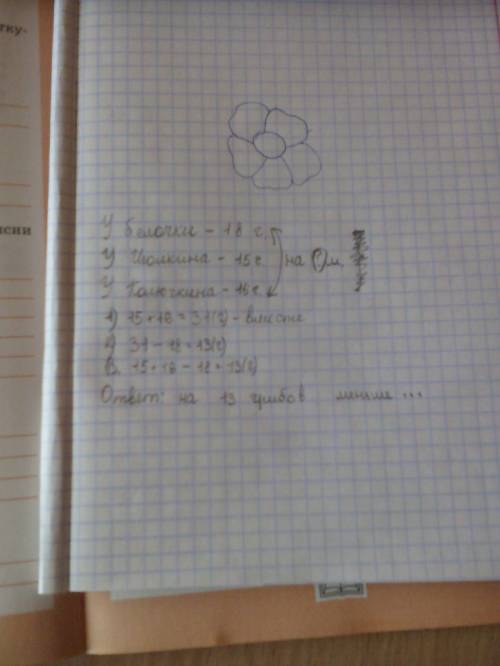 тку-
иси
У белочки - 18 г.
У Иголкина - 15 г. на ? м.
У Колючкина - 16 г.
1) 15 + 16 = 31(г) - вместе
2) 31 - 18 = 13(г)
В. 15 + 16 - 18 = 13(г)
Ответ: на 13 грибов меньше ...